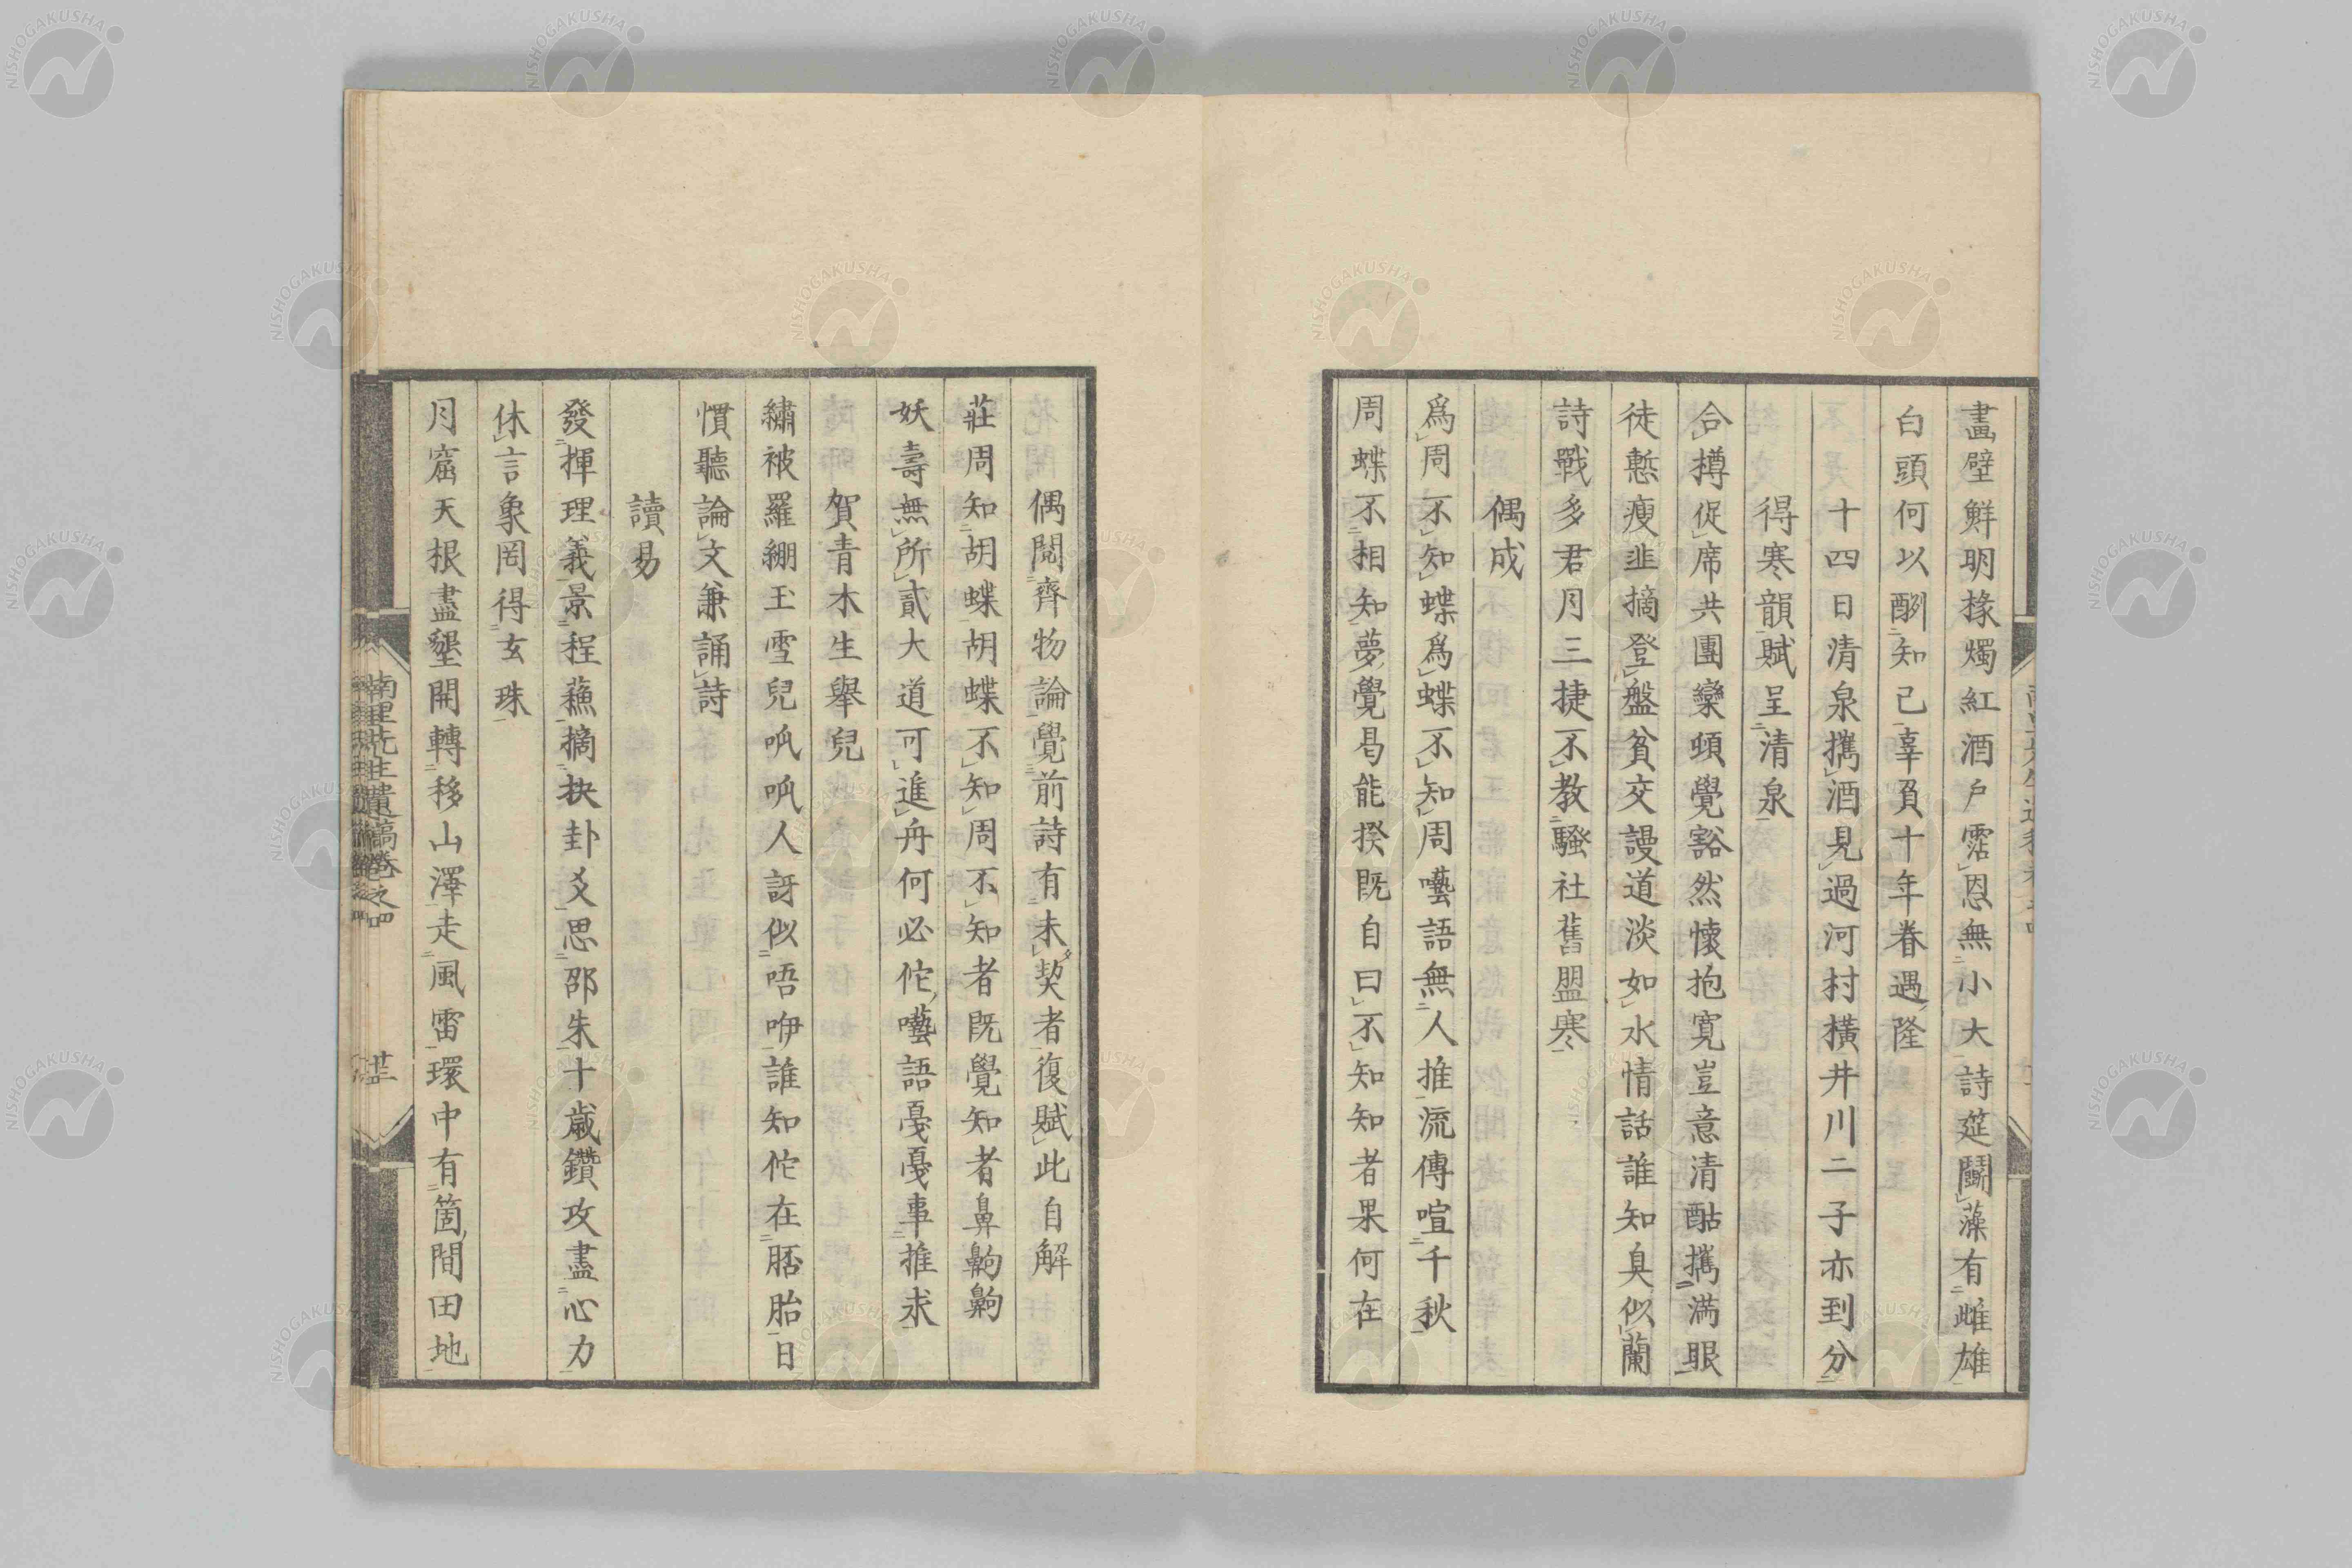 畫壁鮮明椽燭紅酒戶霑恩無小大詩筵鬭藻有雌雄
白頭何以酬知己辜負十年眷遇隆
十四日清泉攜酒見過河村橫井川二子亦到分
得寒韻賦呈清泉
合樽促席共團欒頓覺豁然懷抱寬豈意清酤攜滿眼
徒慙瘦韮摘登盤貧交謾道淡如水情話誰知臭似蘭
詩戰多君月三捷不教騷社舊盟寒
偶成
爲周不知蝶爲蝶不知周囈語無人推流傳喧千秋
周蝶不相知夢覺曷能揆既自曰不知知者果何在
偶閱齊物論覺前詩有未契者復賦此自解
莊周知胡蝶胡蝶不知周不知者既覺知者鼻齁齁
妖壽無所貳大道可進舟何必佗囈語戞戞事推求
賀青木生舉兒
繡被羅綳玉雪兒呱呱人訝似唔咿誰知佗在胚胎日
慣聽論文兼誦詩
讀易
發揮理義景程蘓摘抉卦爻思邵朱十歲鑽攻盡心力
休言象罔得玄珠
月窟天根盡墾開轉移山澤走風雷環中有箇間田地
南里先生遺稿卷之四
廿三
NISHOGAKUSHA